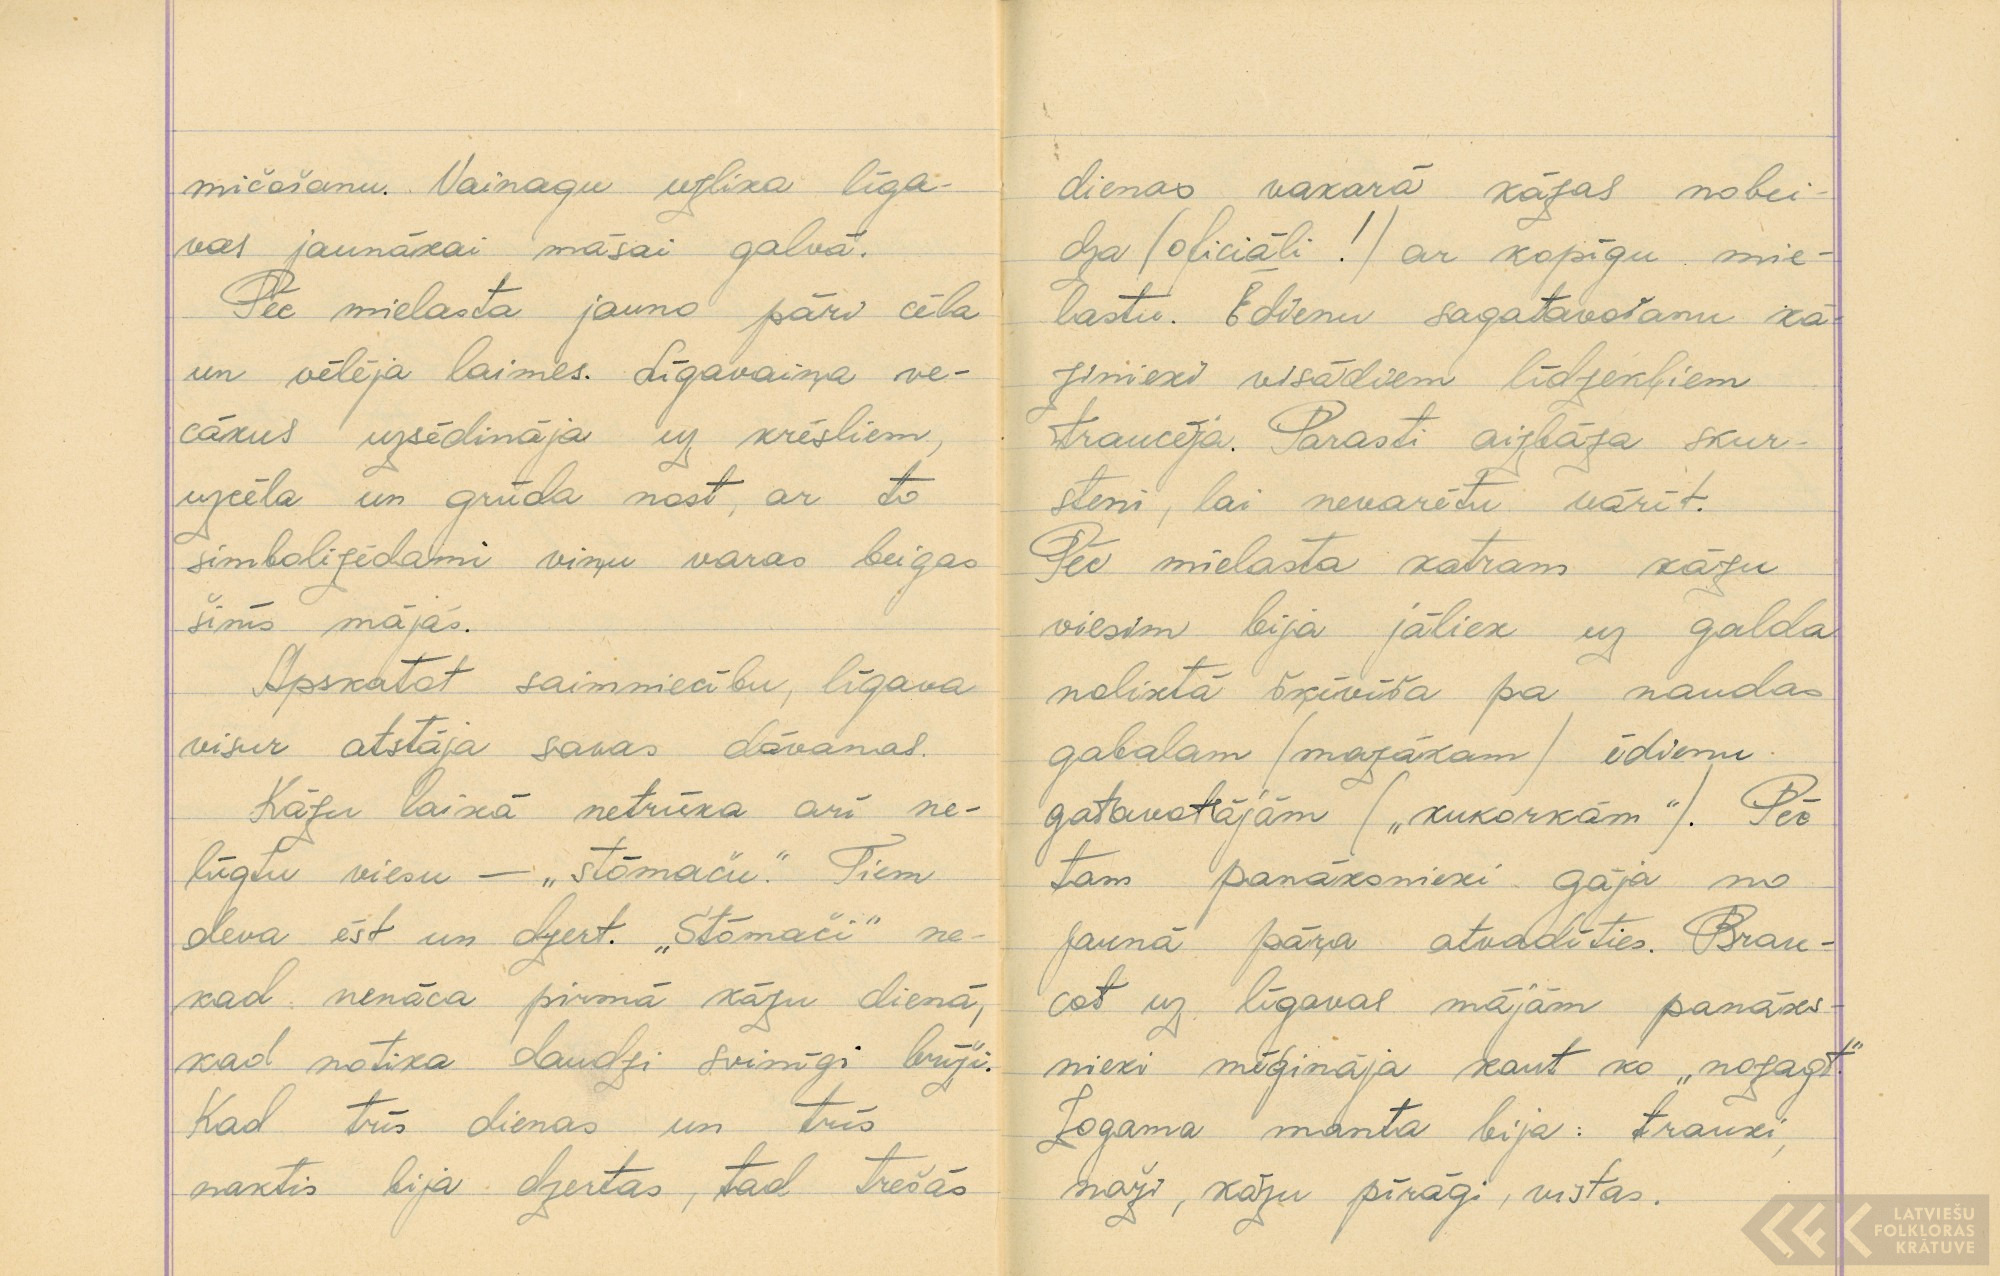 mičošanu. Vainagu uzlika līga-
vas jaunākai māsai galvā.
Pēc mielasta jauno pāri cēla
un vēlēja laimes. Līgavaiņa ve-
cākus uzsēdināja uz krēsliem,
uzcēla un grūda nost, ar to
simbolizēdami viņu varas beigas
šinīs mājās.
Apskatot saimniecību, līgava
visur atstāja savas dāvanas.
Kāzu laikā netrūka arī ne-
lūgtu viesu — „stōmaču". Tiem
deva ēst un dzert. „Stōmači" ne-
kad nenāca pirmā kāzu dienā,
kad notika daudzi svinīgi brīži.
Kad trīs dienas un trīs
naktis bija dzertas, tad trešās
dienas vakarā kāzas nobei-
dza (oficiāli!) ar kopīgu mie-
lastu. Ēdienu sagatavošanu kā-
zinieki visādiem līdzekļiem
traucēja. Parasti aizbāza skur-
steni, lai nevarētu vārīt.
Pēc mielasta katram kāzu
viesim bija jāliek uz galda
noliktā šķīvīša pa naudas
gabalam (mazākam) ēdienu
gatavotājām („kukorkām"). Pēc
tam panāksnieki gāja no
jaunā pāŗa atvadīties. Brau-
cot uz līgavas mājām panāks-
nieki mēģināja kaut ko „nozagt".
Zogama manta bija: trauki,
naži, kāzu pīrāgi, vistas.
LATVIEŠU
FOLKLORAS
KRĀTUVE